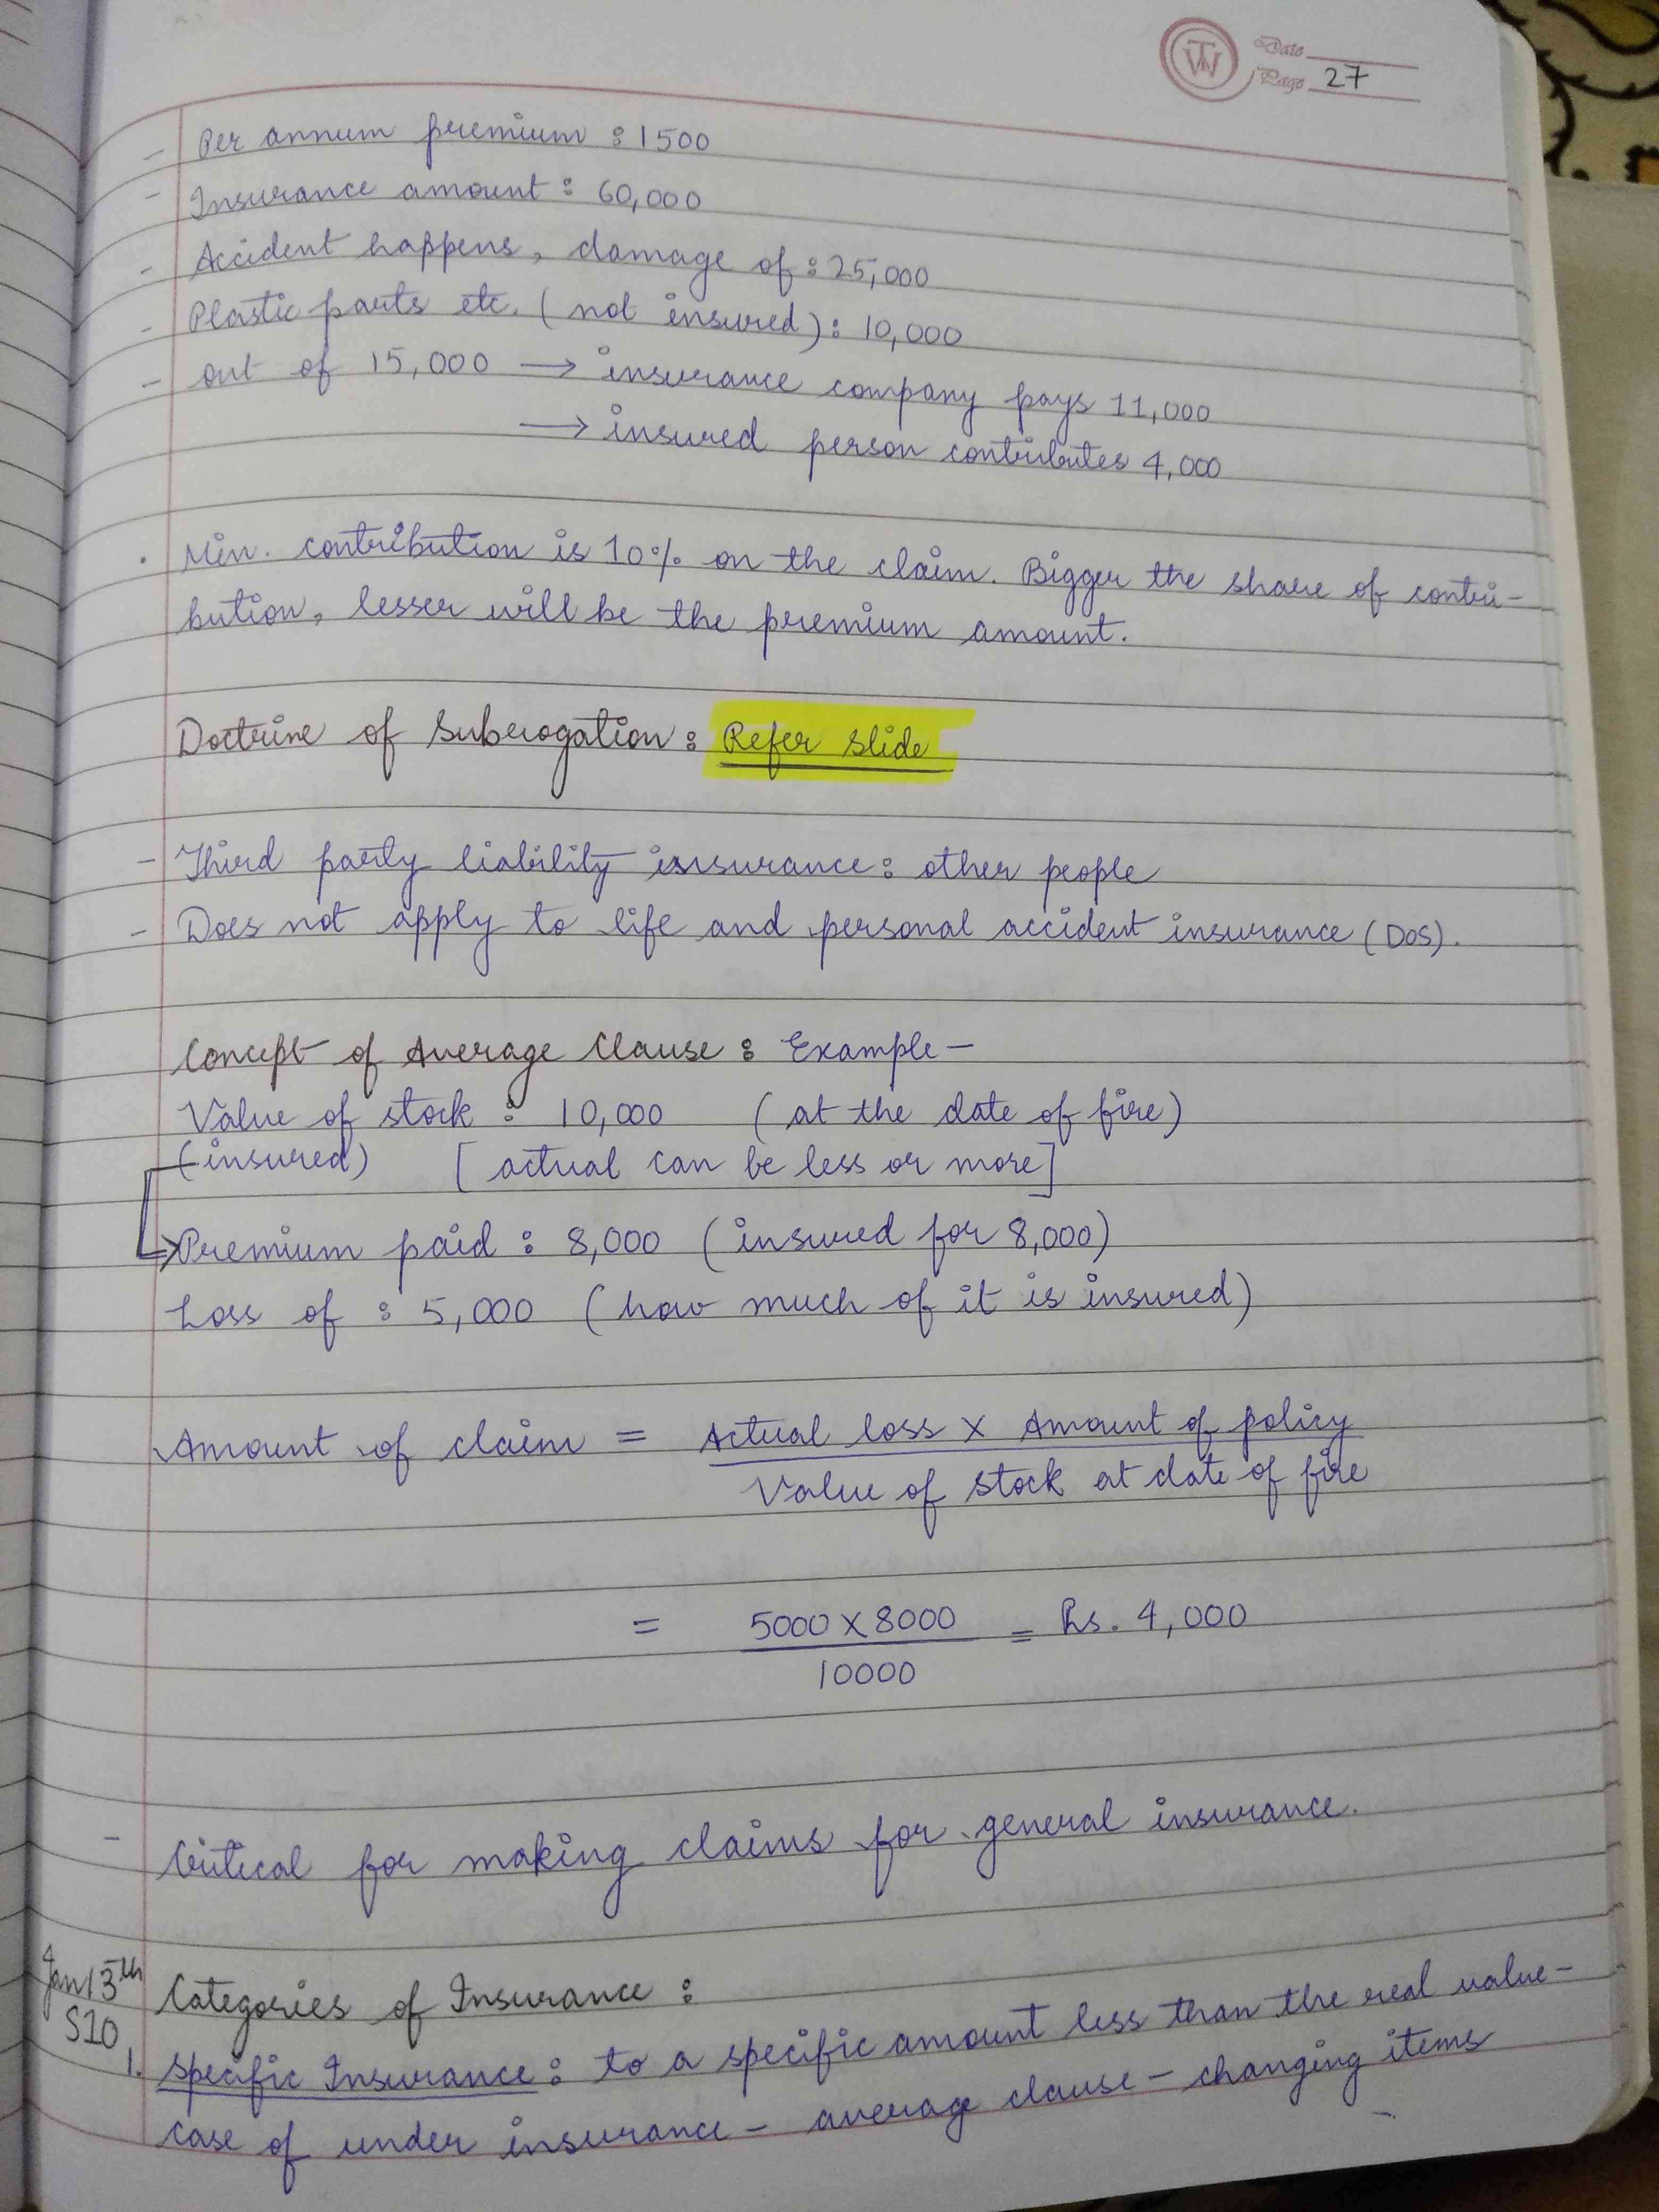 Date
Page 27
- Per annum premium : 1500
- Insurance amount : 60,000
- Accident happens, damage of : 25,000
- Plastic parts etc. (not insured) : 10,000
- out of 15,000 → insurance company pays 11,000
→ insured person contributes 4,000
· Min. contribution is 10% on the claim. Bigger the share of contri-
bution, lesser will be the premium amount.
Doctrine of Subrogation : Refer slide
- Third party liability insurance : other people
- Does not apply to life and personal accident insurance (DOS).
Concept of Average Clause : Example -
Value of stock : 10,000 (at the date of fire)
(insured) [actual can be less or more]
→ Premium paid : 8,000 (insured for 8,000)
Loss of : 5,000 (how much of it is insured)
Amount of claim = Actual loss x Amount of policy
Value of stock at date of fire
= 5000 x 8000 = Rs. 4,000
10000
- Critical for making claims for general insurance.
Jan 13th Categories of Insurance :
S10
1. Specific Insurance : to a specific amount less than the real value -
case of under insurance - average clause - changing items